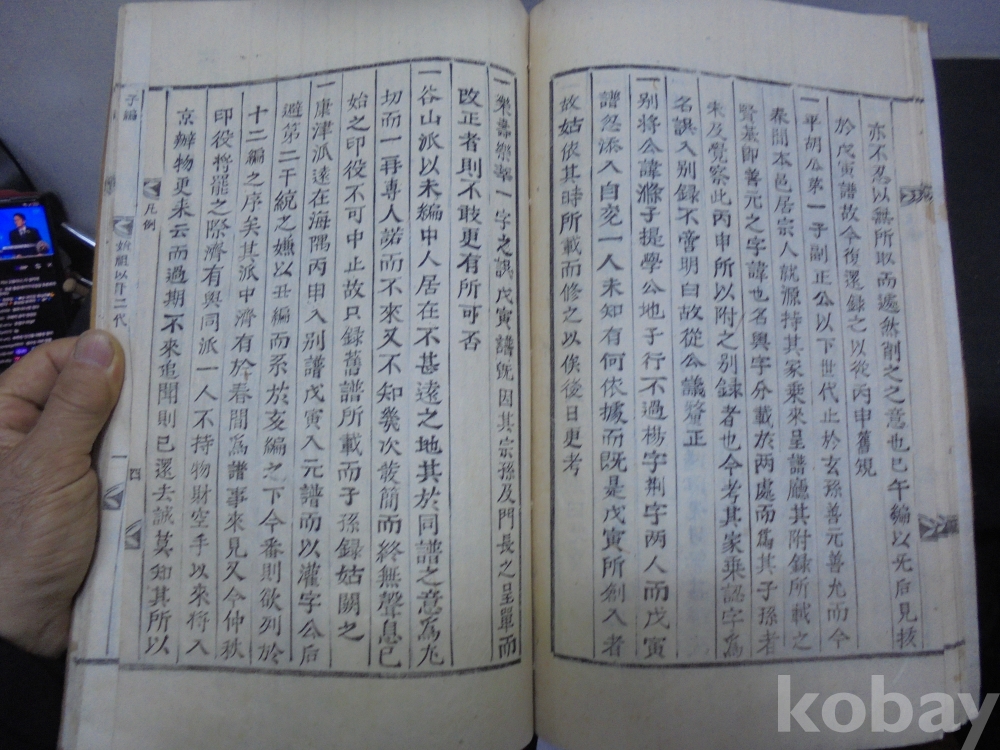 亦不忍以無所取而遽然削之之意也已午編以先后見拔
於戊寅譜故今復還錄之以從丙申舊規
一平胡公第一子副正公以下世代止於玄孫善元善允而今
秦聞本邑居宗人就源持其家乗來呈譜廳其附録所載之
賢基即善元之字諱也名與字分載於两處而爲其子孫者
未及覺察此丙申所以附之别録者也今考其家乗認字爲
名誤入别録不啻明白故從公議釐正
一别將公諱滌子提學公地子行不過楊字荆字两人而戊寅
譜忽添入自交一人未知有何依據而既是戊寅所創入者
故姑依其時所載而修之以俟後日更考
一樂 一字之誤戊寅譜旣因其宗孫及門長之呈單而
改正者則不敢更有所可否
一谷山派以未編中人居在不甚遠之地其於同譜之意爲尤
切而一再專人諾而不來又不知幾次發簡而終無聲息已
始之印役不可中止故只録舊譜所載而子孫録姑闕之
一康津派遠在海隅丙申入别譜戊寅入元譜而以灌字公后
避第二干統之嫌以丑編而系於亥編之下今番則欲列於
十二編之序矣其派中濟有於春間爲譜事來見又今仲秋
印役将罷之際濟有與同派一人不持物財空手以來将入
京辦物更来云而過期不來追聞則已還去誠莫知其所以
子編
凡例
始祖以下二代
四
kobay